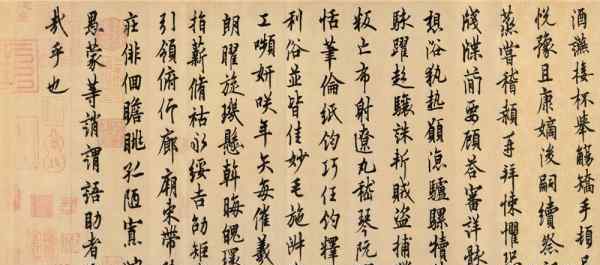 酒讌接杯舉觴矯手頓
悅豫且康嫡後嗣續祭
蒸嘗稽顙再拜悚懼恐
牋牒簡要顧答審詳骸
想浴執熱願涼驢騾犢
駭躍超驤誅斬賊盜捕
叛亡布射遼丸嵇琴阮
恬筆倫紙鈞巧任釣釋
利俗並皆佳妙毛施淑
工嚬妍咲年矢每催羲
朗曜旋璣懸斡晦魄環
指薪脩祜永綏吉劭矩
引領俯仰廊廟束帶
莊俳佪瞻眺孤陋寡
愚蒙等誚謂語助者
哉乎也